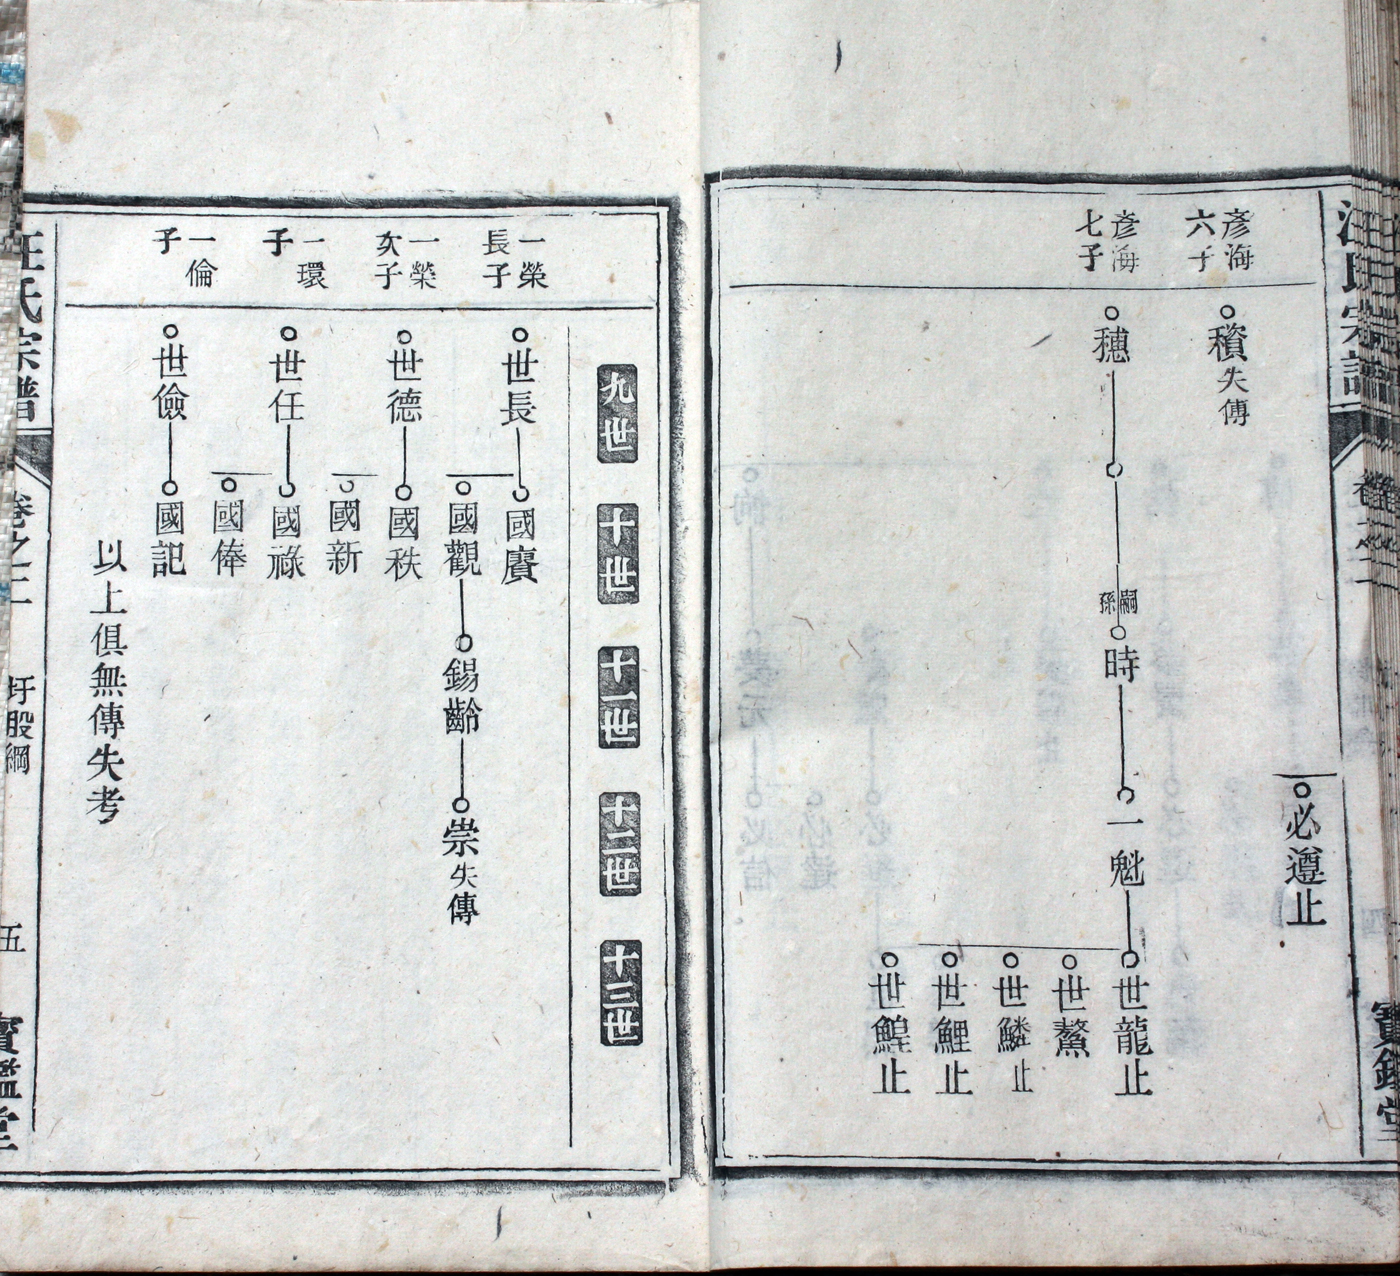 汪氏宗譜
卷之二
寶鑑堂
必遵止
彥海
六子
穳失傳
彥海
七子
穗
嗣
孫
時
一魁
世龍止
世鰲
世鱗止
世鯉止
世鰉止
九世
十世
十一世
十二世
十三世
一榮
長子
世長
國賡
國觀
錫齡
崇失傳
一榮
次子
世德
國秩
國新
一環
子
世任
國祿
國俸
一倫
子
世儉
國記
以上俱無傳失考
汪氏宗譜
卷之二
圩股綱
五
寶鑑堂